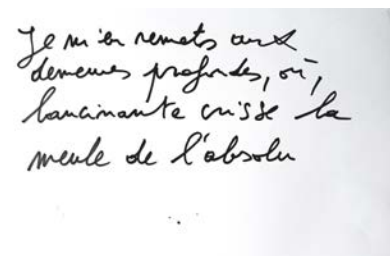 Je m'en remets aux
demeures profondes, où,
lancinante crisse la
meule de l'absolu